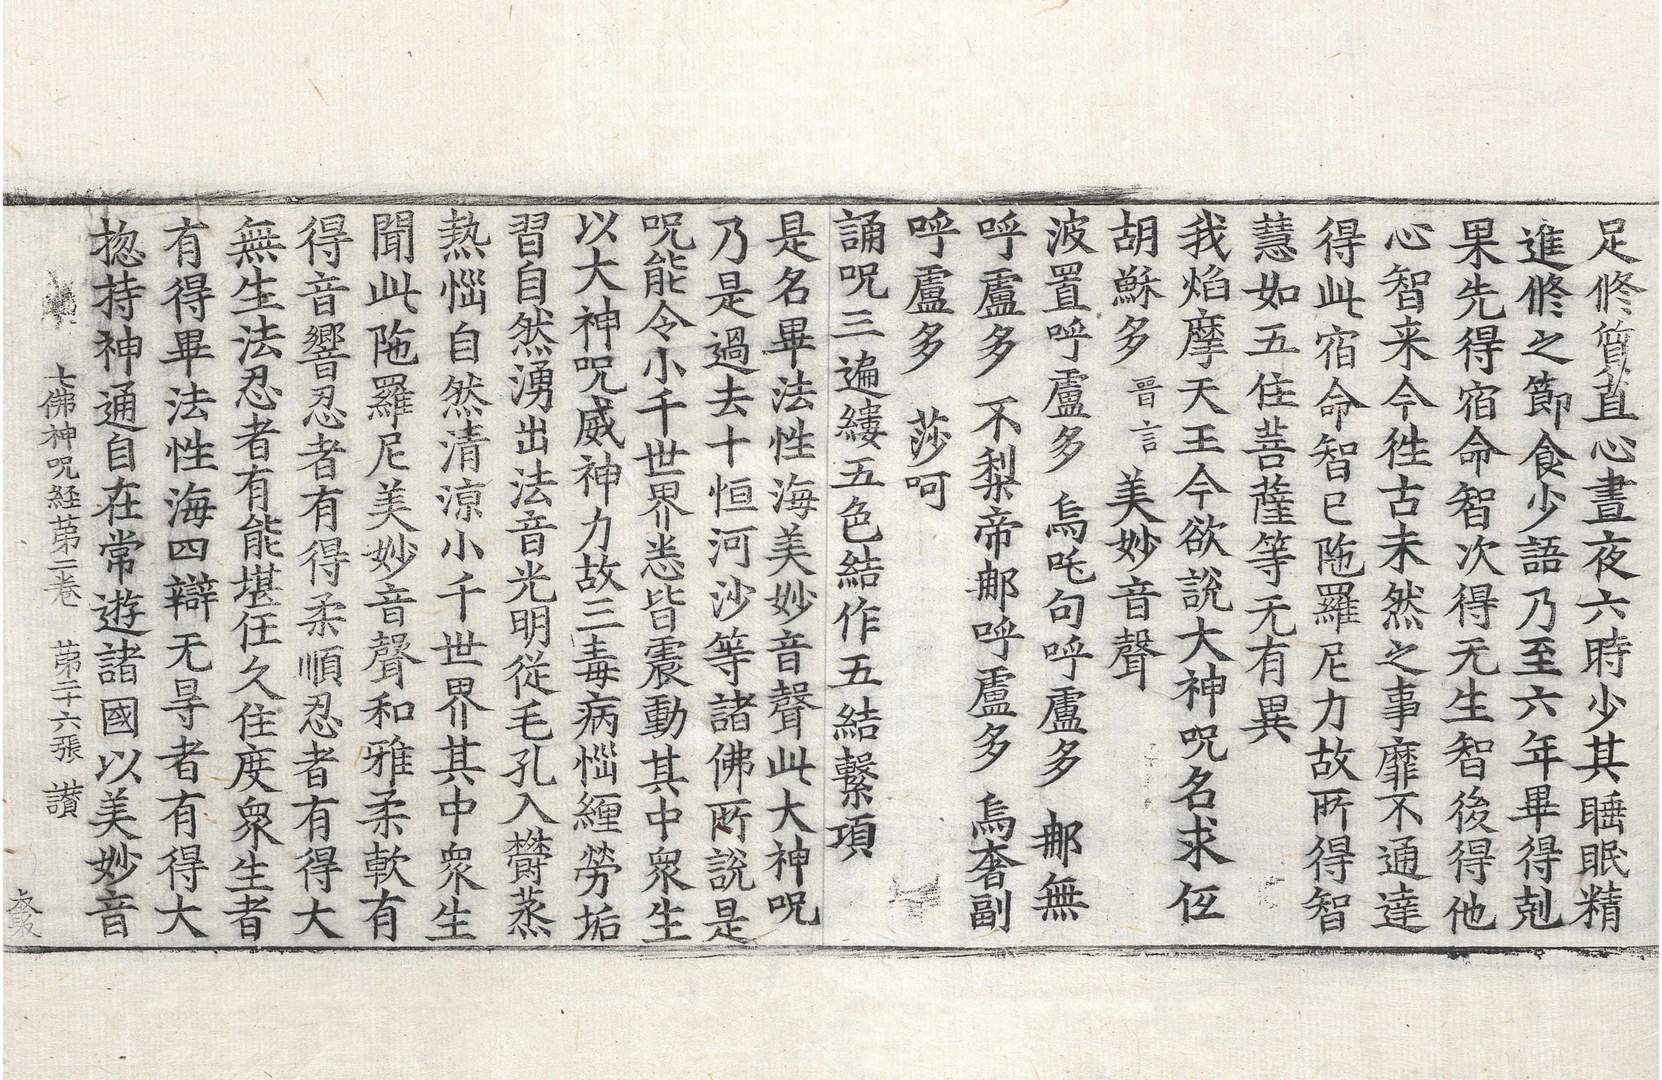 足修質直心晝夜六時少其睡眠精
進修之節食少語乃至六年畢得剋
果先得宿命智次得无生智後得他
心智来今徃古未然之事靡不通達
得此宿命智已陁羅尼力故所得智
慧如五住菩薩等无有異
我焰摩天王今欲說大神呪名求仾
胡蘇多 晋言 美妙音聲
波置呼盧多 烏吒句呼盧多 郍無
呼盧多 不梨帝郍呼盧多 烏奢副
呼盧多 莎呵
誦呪三遍縷五色結作五結繫項
是名畢法性海美妙音聲此大神呪
乃是過去十恒河沙等諸佛所說是
呪能令小千世界悉皆震動其中衆生
以大神呪威神力故三毒病惱纏勞垢
習自然湧出法音光明從毛孔入欝蒸
熱惱自然清涼小千世界其中衆生
聞此陁羅尼美妙音聲和雅柔軟有
得音響忍者有得柔順忍者有得大
無生法忍者有能堪任久住度衆生者
有得畢法性海四辯无㝵者有得大
揔持神通自在常遊諸國以美妙音
七佛神呪経苐二卷 苐二十六張 讃